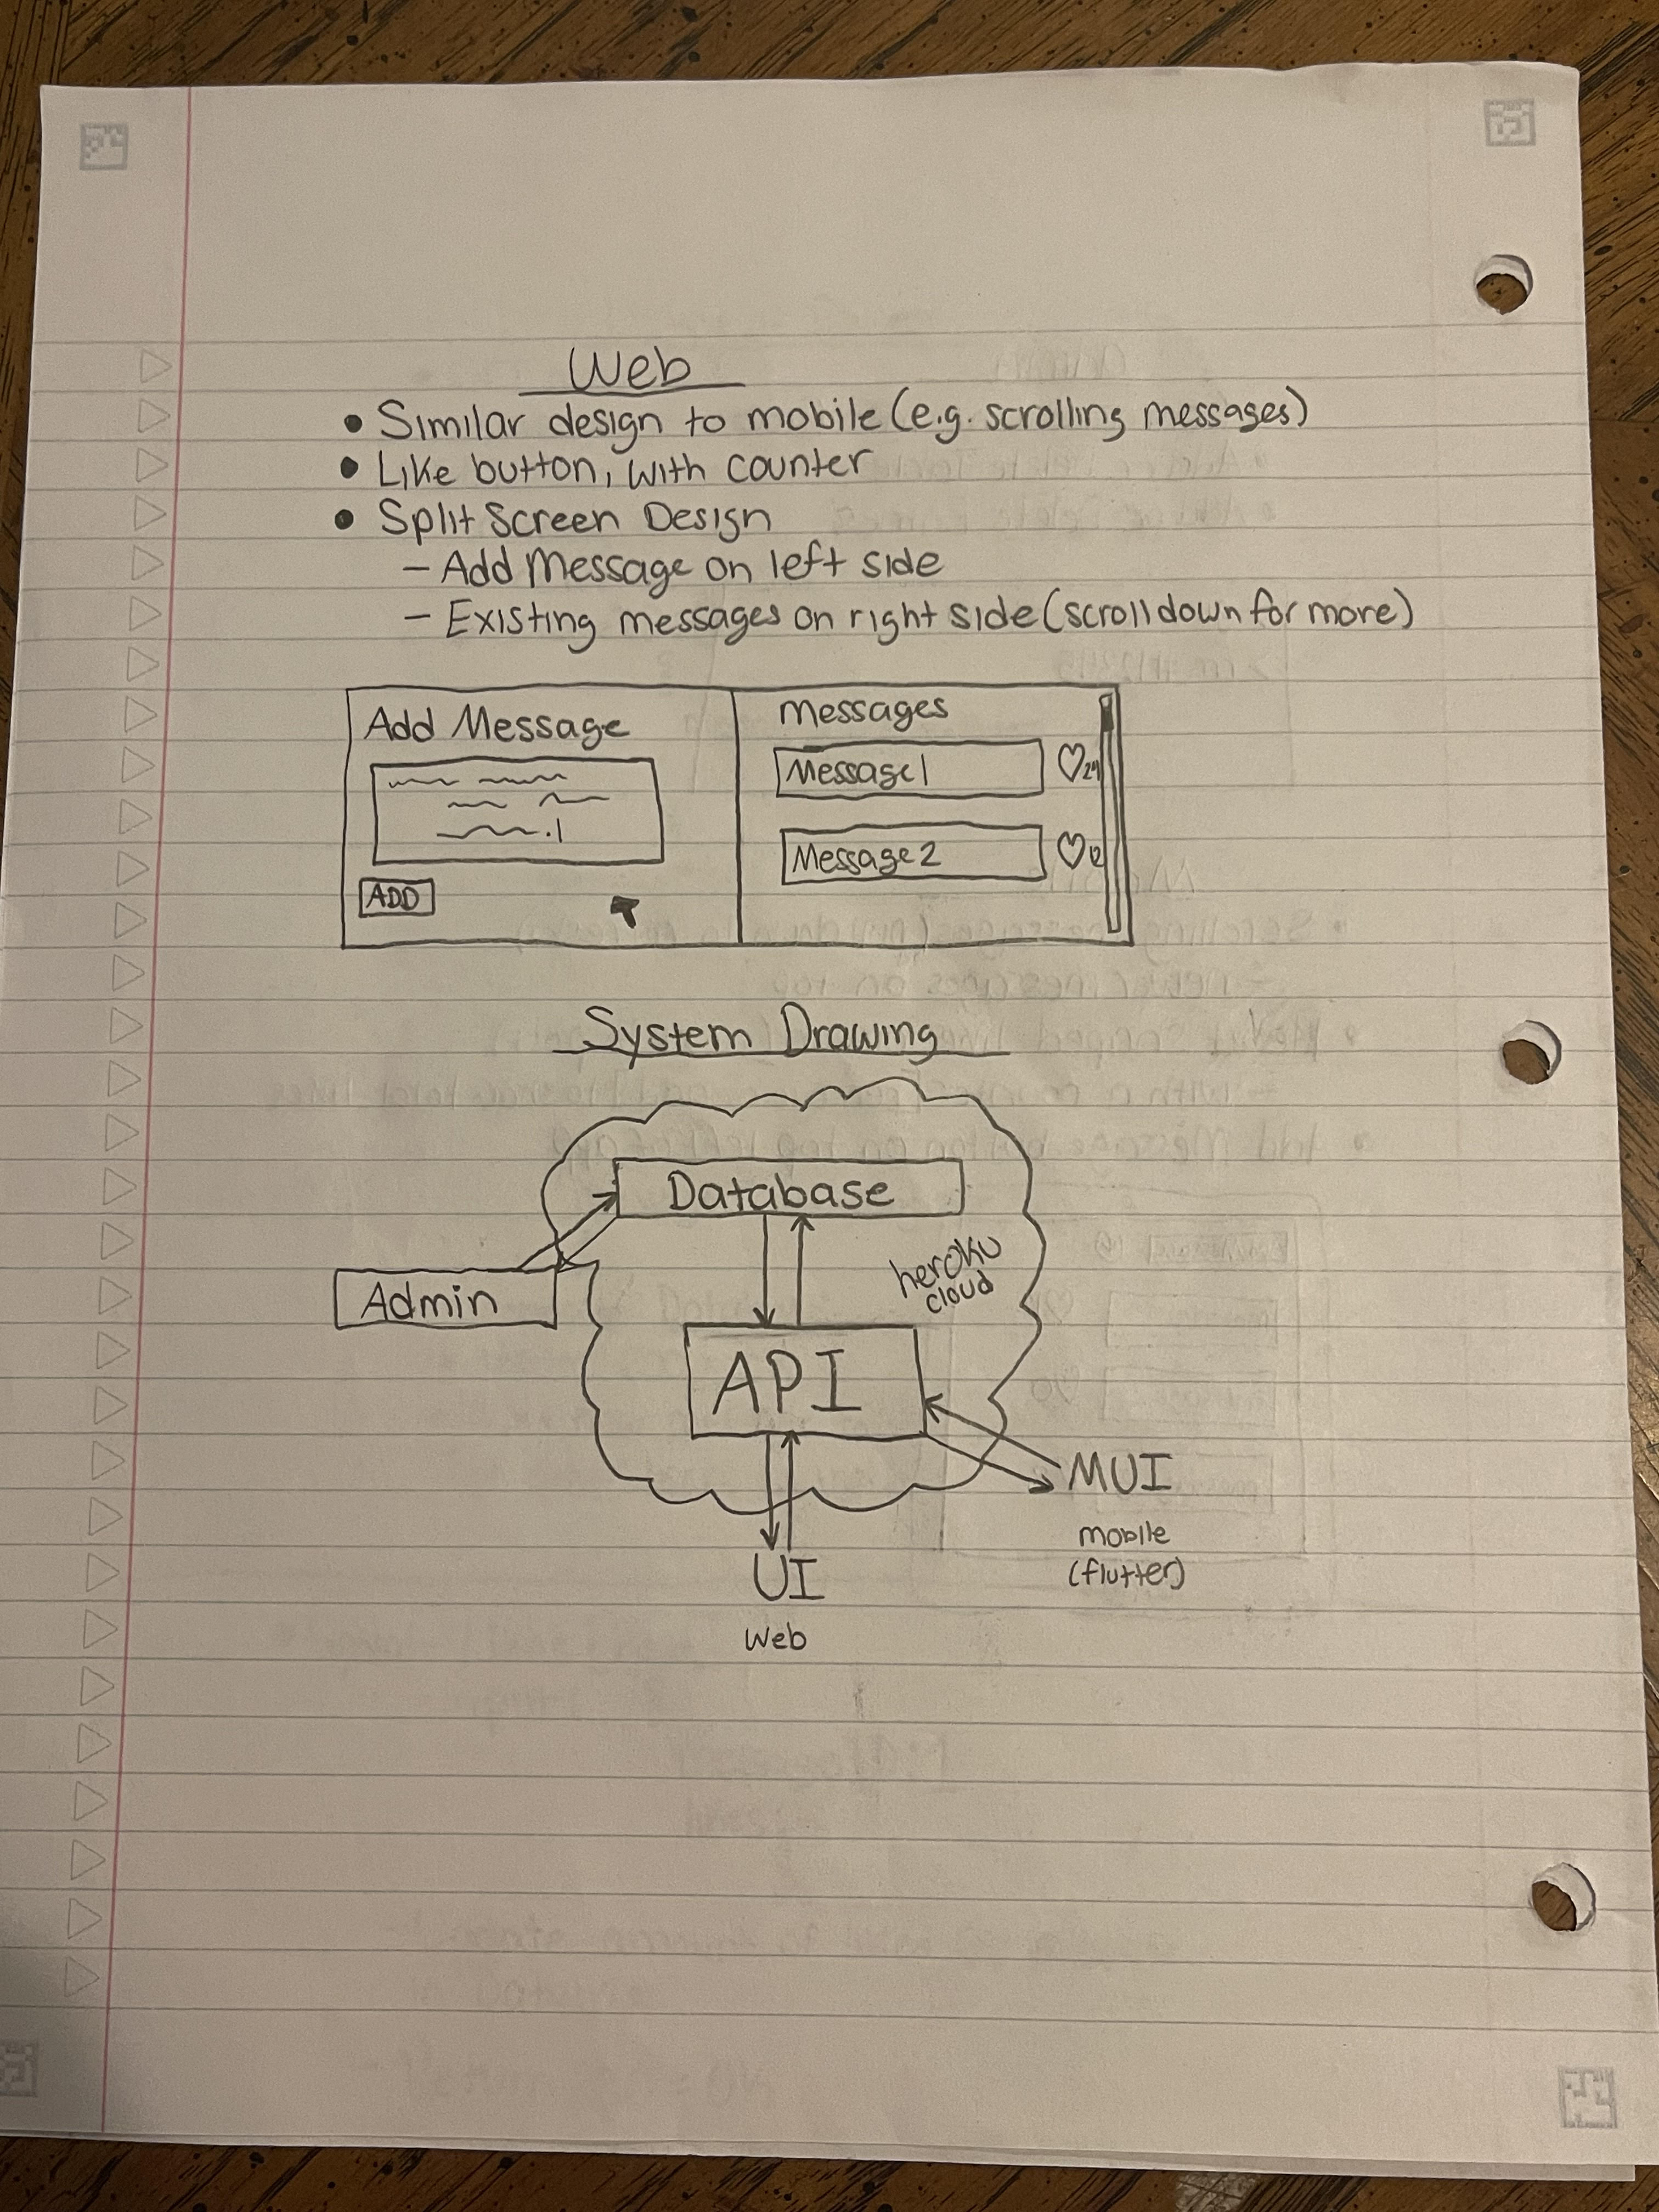 Web
• Similar design to mobile (e.g. scrolling messages)
• Like button, with counter
• Split Screen Design
– Add Message on left side
– Existing messages on right side (scroll down for more)
Add Message
ADD
Messages
Message 1
24
Message 2
12
System Drawing
Database
heroku
cloud
Admin
API
MUI
mobile
(flutter)
UI
Web